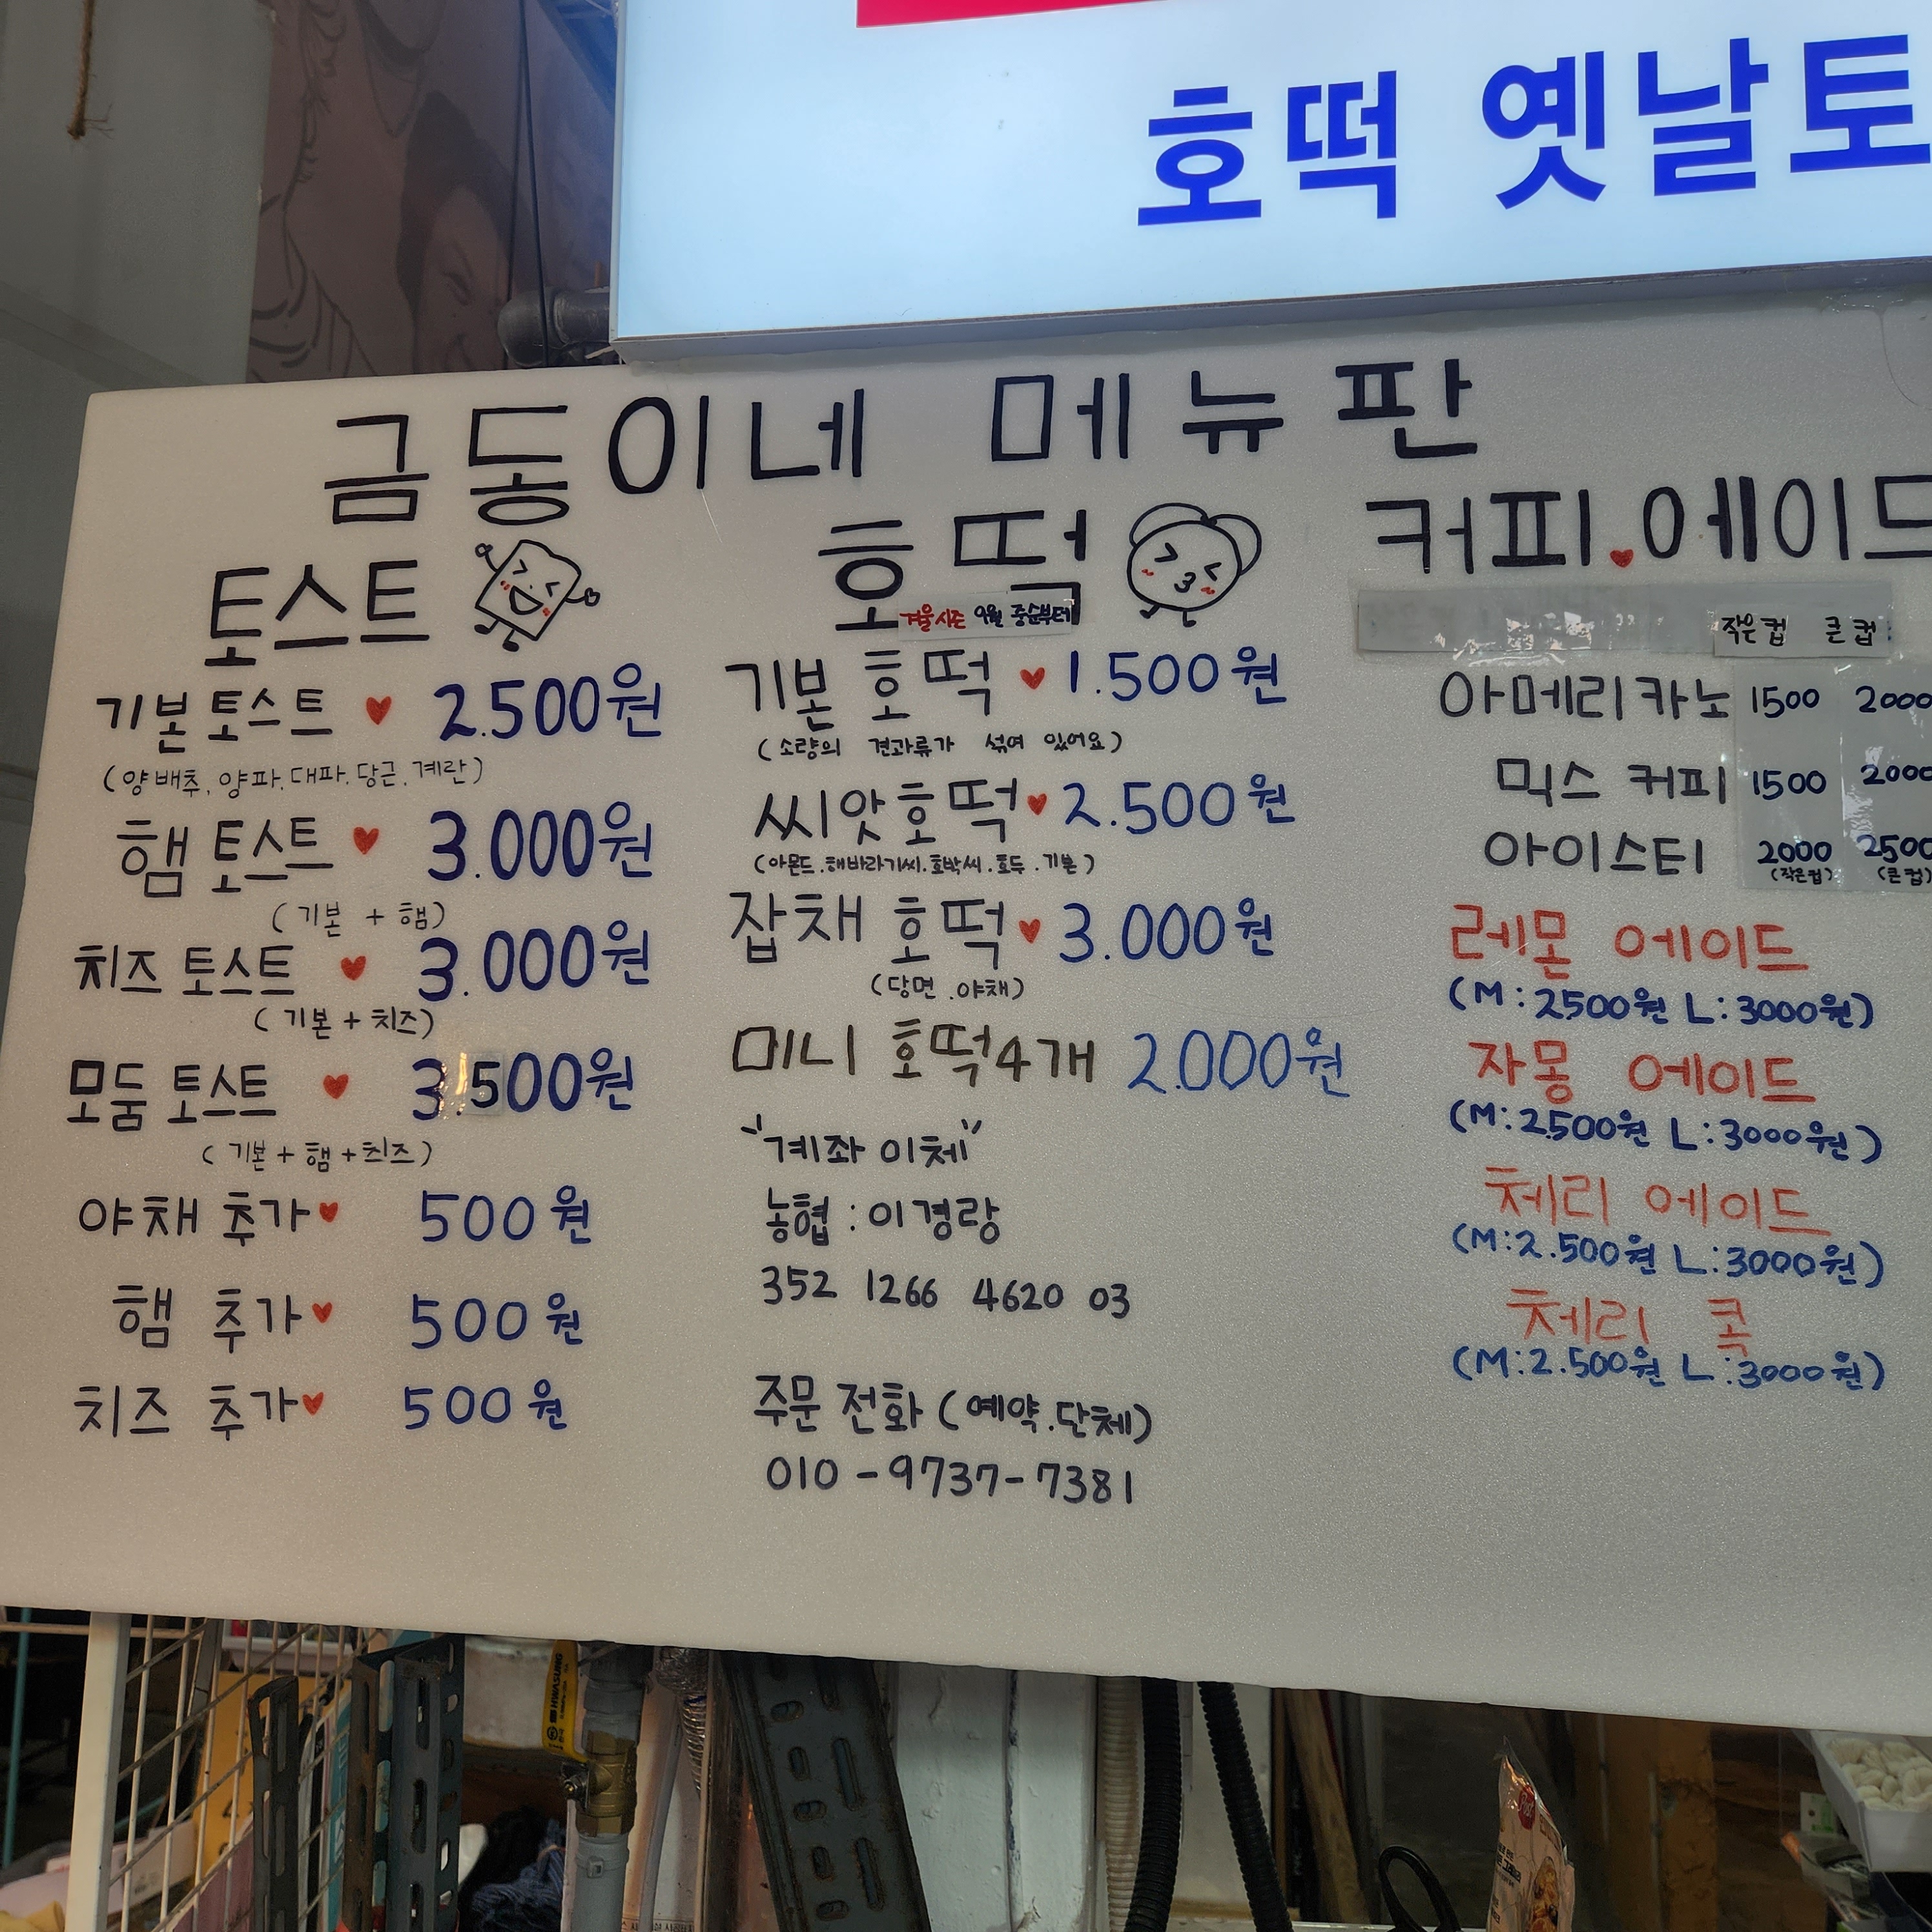 호떡 옛날토
금동이네 메뉴판
토스트
기본토스트 ♥ 2.500원
(양배추, 양파. 대파. 당근. 계란)
햄 토스트 ♥ 3.000원
(기본 + 햄)
치즈 토스트 ♥ 3.000원
(기본 + 치즈)
모둠 토스트 ♥ 3.500원
(기본 + 햄 + 치즈)
야채 추가♥ 500원
햄 추가♥ 500원
치즈 추가♥ 500원
호떡
겨울시즌 9월 중순부터
기본 호떡 ♥ 1.500원
(소량의 견과류가 섞여 있어요)
씨앗호떡♥ 2.500원
(아몬드.해바라기씨.호박씨.호두.기본)
잡채 호떡♥ 3.000원
(당면.야채)
미니 호떡4개 2.000원
"계좌 이체"
농협 : 이경랑
352 1266 4620 03
주문 전화 (예약.단체)
010-9737-7381
커피♥에이드
작은컵 큰컵
아메리카노 1500 2000
믹스 커피 1500 2000
아이스티 2000 2500
(작은컵) (큰컵)
레몬 에이드
(M:2500원 L:3000원)
자몽 에이드
(M:2.500원 L:3000원)
체리 에이드
(M:2.500원 L:3000원)
체리 콕
(M:2.500원 L:3000원)
HWASUNG